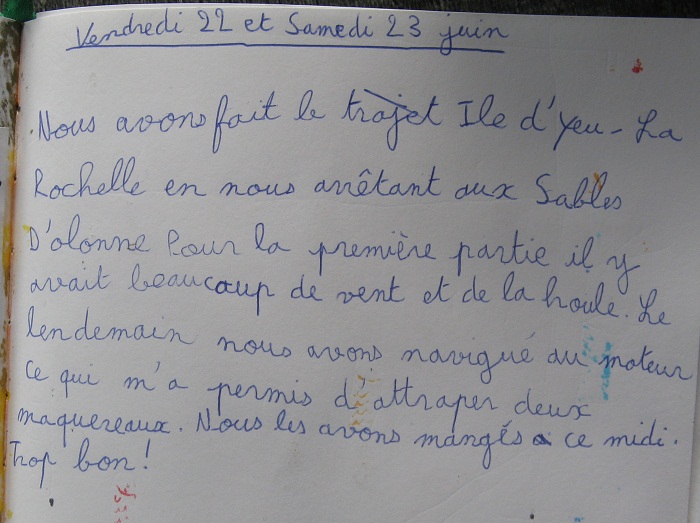 Vendredi 22 et Samedi 23 juin
Nous avons fait le trajet Ile d'Yeu - La
Rochelle en nous arrêtant aux Sables
D'olonne Pour la première partie il y
avait beaucoup de vent et de la houle. Le
lendemain nous avons navigué au moteur
ce qui m'a permis d'attraper deux
maquereaux. Nous les avons mangés a ce midi.
Trop bon!